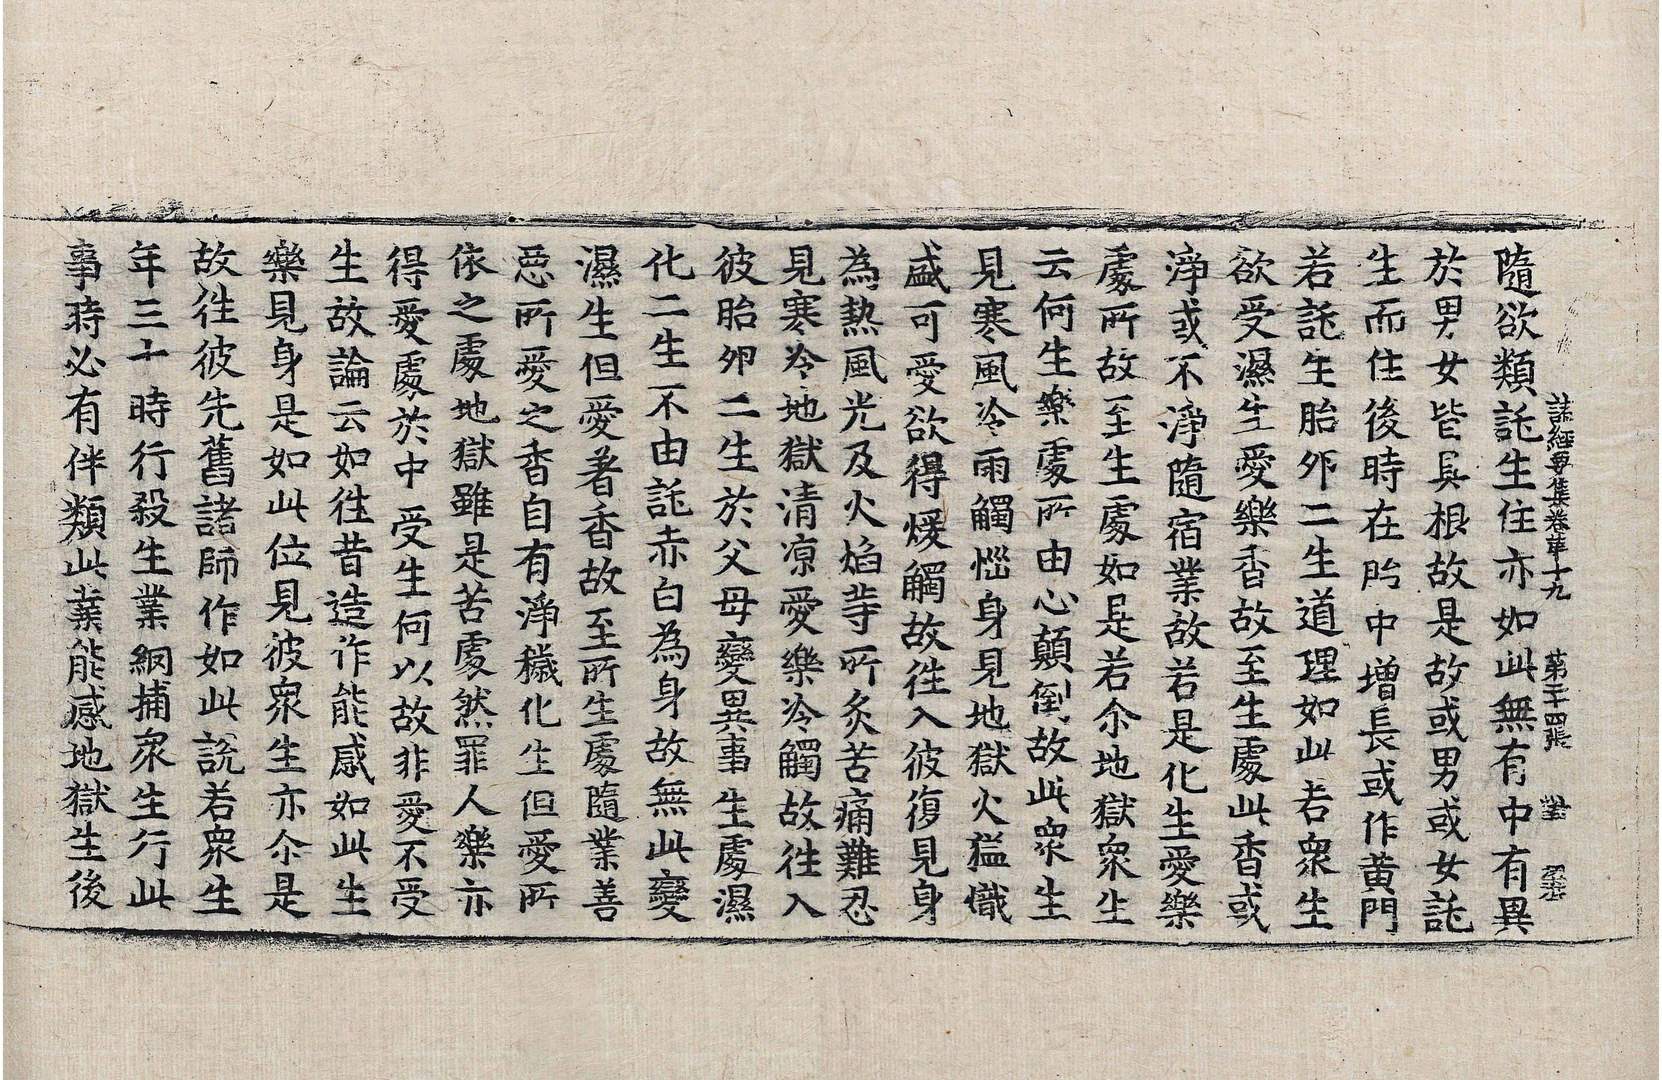 諸經要集卷第十九 第二十四張 對
隨欲類託生住亦如此無有中有異
於男女皆具根故是故或男或女託
生而住後時在胎中增長或作黃門
若託生胎卵二生道理如此若衆生
欲受濕生愛樂香故至生處此香或
淨或不淨隨宿業故若是化生愛樂
處所故至生處如是若尒地獄衆生
云何生樂處所由心顛倒故此衆生
見寒風冷雨觸惱身見地獄火猛熾
盛可愛欲得煖觸故往入彼復見身
為熱風光及火焰等所炙苦痛難忍
見寒冷地獄清凉愛樂冷觸故往入
彼胎卵二生於父母變異事生處濕
化二生不由託赤白為身故無此變
濕生但愛著香故至所生處隨業善
惡所愛之香自有淨穢化生但愛所
依之處地獄雖是苦處然罪人樂亦
得愛處於中受生何以故非愛不受
生故論云如往昔造作能感如此生
樂見身是如此位見彼衆生亦尒是
故往彼先舊諸師作如此說若衆生
年三十時行殺生業網捕衆生行此
事時必有伴類此業能感地獄生後